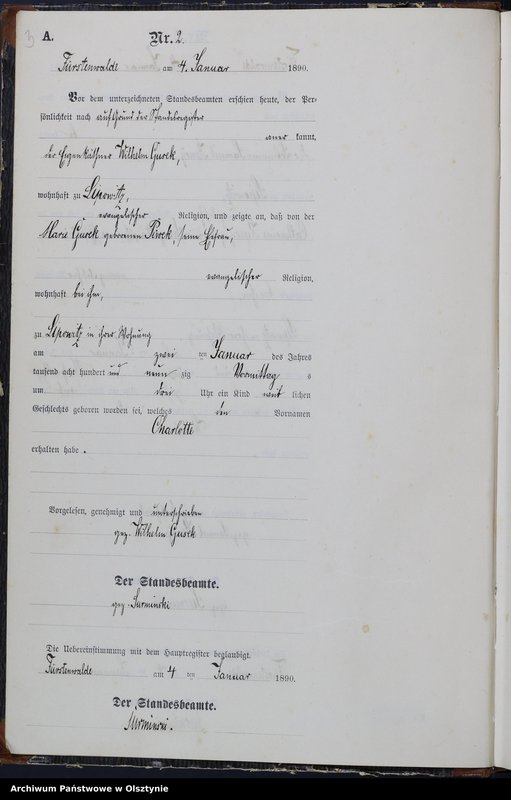 A. Nr. 2.
Fürstenwalde am 4. Januar 1890.
Vor dem unterzeichneten Standesbeamten erschien heute, der Per-
sönlichkeit nach auf Grund der Standesregister
aner kannt,
der Eigenkäthner Wilhelm Gusek,
wohnhaft zu Lipowitz,
evangelischer Religion, und zeigte an, daß von der
Marie Gusek geborenen Piwek, seine Ehefrau,
evangelischer Religion,
wohnhaft bei ihm,
zu Lipowitz in ihrer Wohnung
am zwei ten Januar des Jahres
tausend acht hundert und neun zig Vormittag s
um drei Uhr ein Kind weib lichen
Geschlechts geboren worden sei, welches den Vornamen
Charlotte
erhalten habe.
Vorgelesen, genehmigt und unterschrieben
gez. Wilhelm Gusek
Der Standesbeamte.
gez. Surminski
Die Uebereinstimmung mit dem Hauptregister beglaubigt.
Fürstenwalde am 4 ten Januar 1890.
Der Standesbeamte.
Surminski.
Archiwum Państwowe w Olsztynie